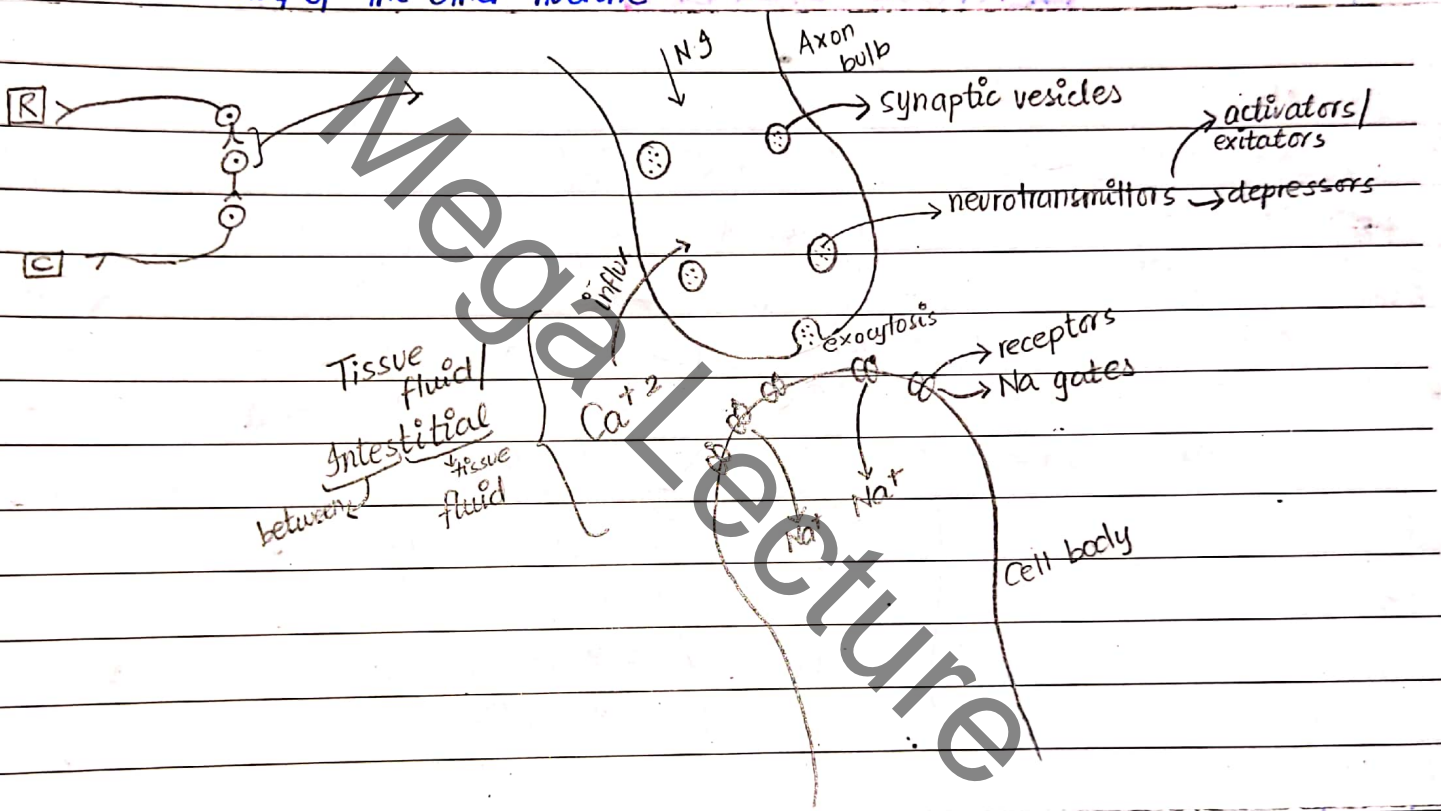 of the other
N.I
Axon
bulb
R
synaptic vesicles
activators/
exitators
neurotransmittors → depressors
C
influx
exocytosis
receptors
Na gates
Tissue
fluid/
Intestitial
tissue
between
fluid
Ca+2
Na+
Na+
Cell body
Mega Lecture